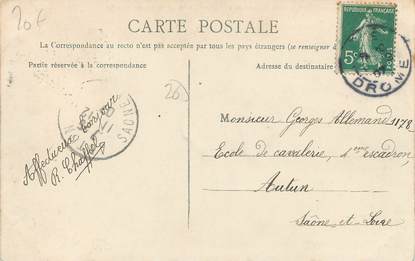 20f
CARTE POSTALE
La Correspondance au recto n'est pas acceptée par tous les pays étrangers (se renseigner
Partie réservée à la correspondance
Adresse du destinataire
REPUBLIQUE FRANÇAISE
5c
DROME
20
SAONE
Affectueux bonjour
R. Chaffel
Monsieur Georges Allemand 1178
Ecole de cavalerie, 4eme escadron,
Autun
Saône et Loire